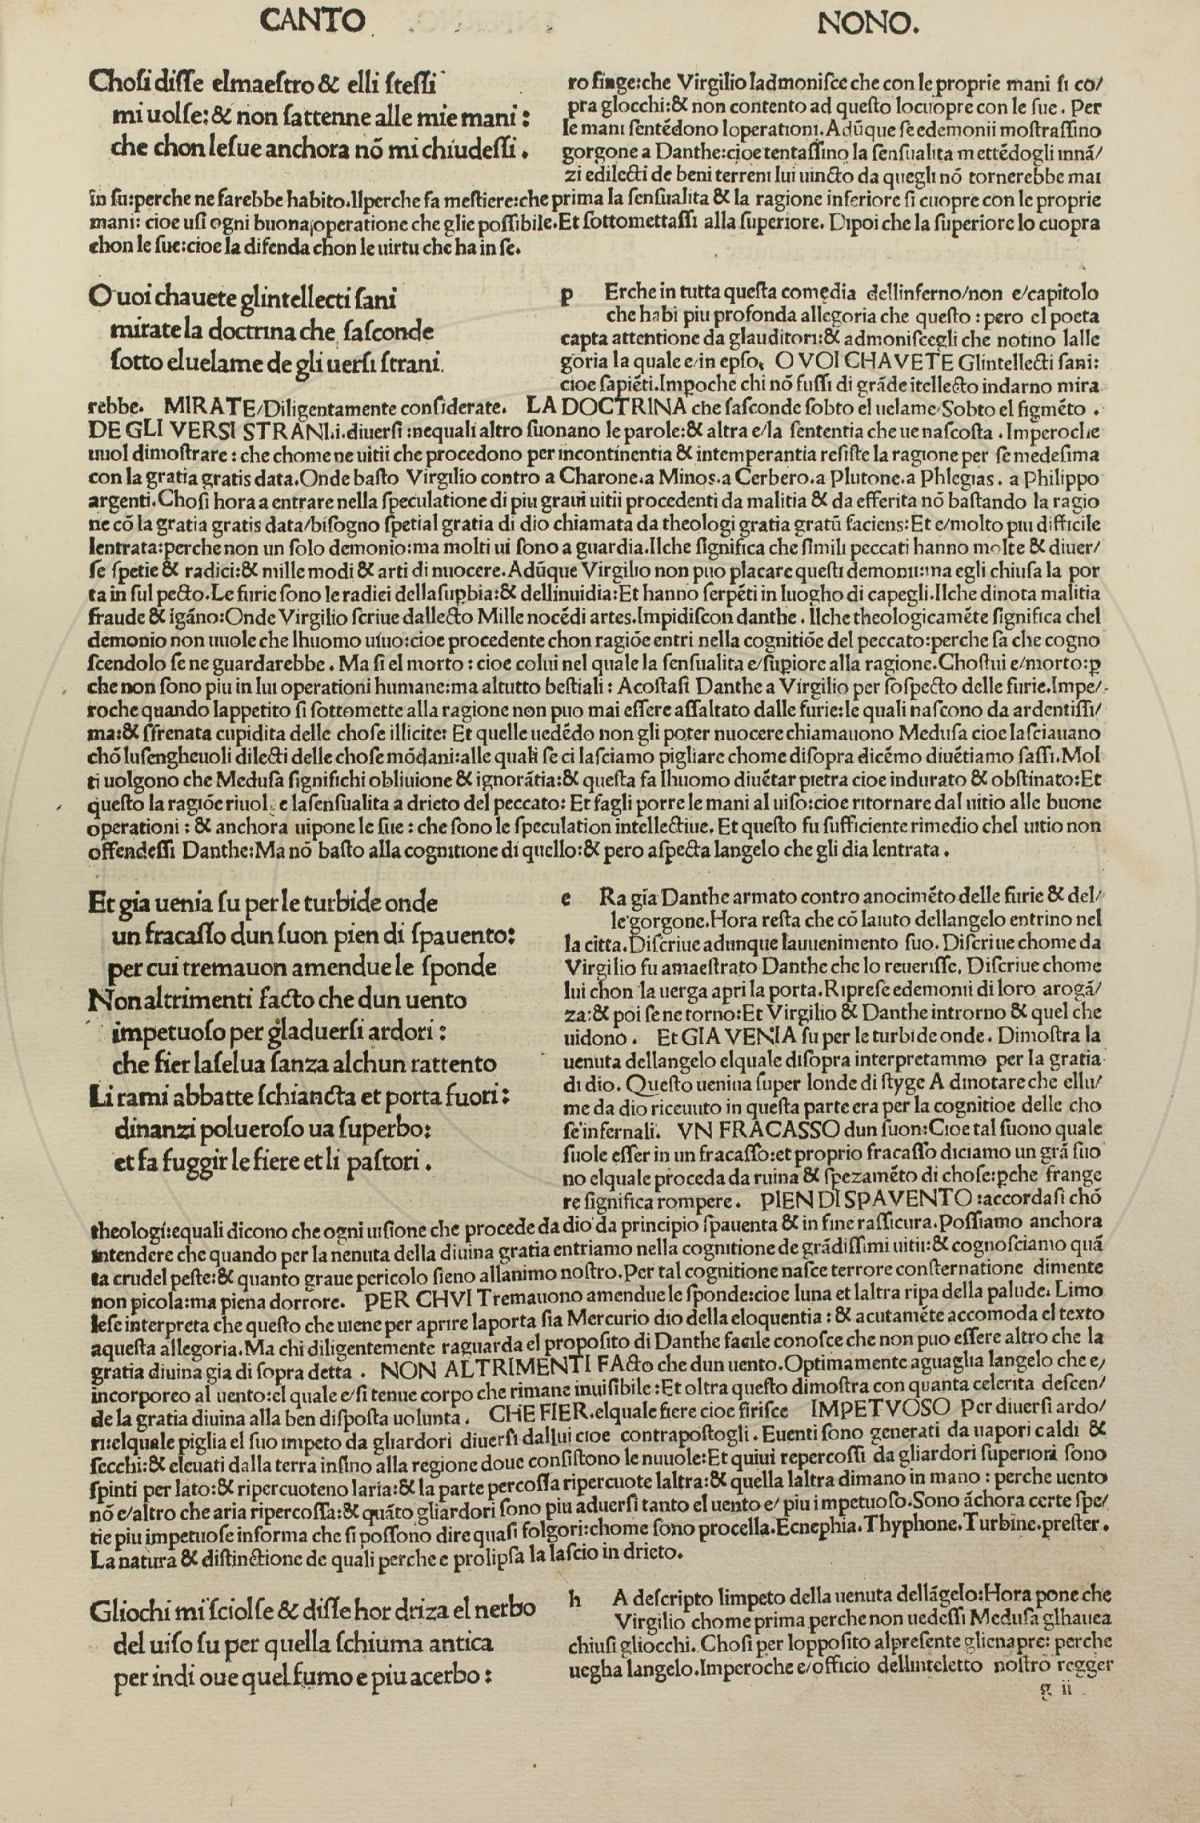 CANTO NONO.
Choſi diſſe elmaeſtro & elli ſteſſi
mi uolſe: & non ſattenne alle mie mani:
che chon leſue anchora nō mi chiudeſſi.
ro finge: che Virgilio ladmoniſce che con le proprie mani ſi co/
pra glocchi: & non contento ad queſto lo cuopre con le ſue. Per
le mani ſentēdono loperationi. Adūque ſe edemonii moſtraſſino
gorgone a Danthe: cioe tentaſſino la ſenſualita mettēdogli innā/
zi edilecti de beni terreni lui uincto da quegli nō tornerebbe mai
in ſu: perche ne farebbe habito. Ilperche fa meſtiere: che prima la ſenſualita & la ragione inferiore ſi cuopre con le proprie
mani: cioe uſi ogni buona operatione che glie poſſibile. Et ſottomettaſſi alla ſuperiore. Dipoi che la ſuperiore lo cuopra
chon le ſue: cioe la difenda chon le uirtu che ha in ſe.
O uoi chauete glintellecti ſani
mirate la doctrina che ſaſconde
ſotto eluelame de gli uerſi ſtrani.
p Erche in tutta queſta comedia dellinferno/non e/capitolo
che habi piu profonda allegoria che queſto: pero el poeta
capta attentione da glauditori: & admoniſcegli che notino lalle
goria la quale e/in epſo. O VOI CHAVETE Glintellecti ſani:
cioe ſapiēti. Impoche chi nō fuſſi di grāde ītellecto indarno mira
rebbe. MIRATE/Diligentamente conſiderate. LA DOCTRINA che ſaſconde ſobto el uelame/Sobto el figmēto.
DE GLI VERSI STRANI.i.diuerſi: nequali altro ſuonano le parole: & altra e/la ſententia che ue naſcoſta. Imperoche
uuol dimoſtrare: che chome ne uitii che procedono per incontinentia & intemperantia reſiſte la ragione per ſe medeſima
con la gratia gratis data. Onde baſto Virgilio contro a Charone. a Minos. a Cerbero. a Plutone. a Phlegias. a Philippo
argenti. Choſi hora a entrare nella ſpeculatione di piu graui uitii procedenti da malitia & da efferita nō baſtando la ragio
ne cō la gratia gratis data/biſogno ſpetial gratia di dio chiamata da theologi gratia gratū faciens: Et e/molto piu difficile
lentrata: perche non un ſolo demonio: ma molti ui ſono a guardia. Ilche ſignifica che ſimili peccati hanno molte & diuer/
ſe ſpetie & radici: & mille modi & arti di nuocere. Adūque Virgilio non puo placare queſti demonii: ma egli chiuſa la por
ta in ſul pecto. Le furie ſono le radici della ſupbia: & dellinuidia: Et hanno ſerpēti in luogho di capegli. Ilche dinota malitia
fraude & īgāno: Onde Virgilio ſcriue dallecto Mille nocēdi artes. Impidiſcon danthe. Ilche theologicamēte ſignifica chel
demonio non uuole che lhuomo uiuo: cioe procedente chon ragiōe entri nella cognitiōe del peccato: perche ſa che cogno
ſcendolo ſe ne guardarebbe. Ma ſi el morto: cioe colui nel quale la ſenſualita e/ſupiore alla ragione. Choſtui e/morto: p
che non ſono piu in lui operationi humane: ma altutto beſtiali: Acoſtaſi Danthe a Virgilio per ſoſpecto delle furie. Impe/
roche quando lappetito ſi ſottomette alla ragione non puo mai eſſere aſſaltato dalle furie: le quali naſcono da ardentiſſi/
ma: & sfrenata cupidita delle choſe illicite: Et quelle uedēdo non gli poter nuocere chiamauono Meduſa cioe laſciauano
chō luſengheuoli dilecti delle choſe mōdani: alle quali ſe ci laſciamo pigliare chome diſopra dicēmo diuētiamo ſaſſi. Mol
ti uolgono che Meduſa ſignifichi obliuione & ignorātia: & queſta fa lhuomo diuētar pietra cioe indurato & obſtinato: Et
queſto la ragiōe riuol e laſenſualita a drieto del peccato: Et fagli porre le mani al uiſo: cioe ritornare dal uitio alle buone
operationi: & anchora uipone le ſue: che ſono le ſpeculation intellectiue. Et queſto fu ſufficiente rimedio chel uitio non
offendeſſi Danthe: Ma nō baſto alla cognitione di quello: & pero aſpecta langelo che gli dia lentrata.
Et gia uenia ſu per le turbide onde
un fracaſſo dun ſuon pien di ſpauento:
per cui tremauon amendue le ſponde
Non altrimenti facto che dun uento
impetuoſo per gladuerſi ardori:
che fier laſelua ſanza alchun rattento
Li rami abbatte ſchiancta et porta fuori:
dinanzi polueroſo ua ſuperbo:
et fa fuggir le fiere et li paſtori.
e Ra gia Danthe armato contro anocimēto delle furie & del/
le gorgone. Hora reſta che cō laiuto dellangelo entrino nel
la citta. Diſcriue adunque lauuenimento ſuo. Diſcriue chome da
Virgilio fu amaeſtrato Danthe che lo reueriſſe. Diſcriue chome
lui chon la uerga apri la porta. Ripreſe edemonii di loro arogā/
za: & poi ſe ne torno: Et Virgilio & Danthe introrno & quel che
uidono. Et GIA VENIA ſu per le turbide onde. Dimoſtra la
uenuta dellangelo elquale diſopra interpretammo per la gratia
di dio. Queſto ueniua ſuper londe di ſtyge A dinotare che ellu/
me da dio riceuuto in queſta parte era per la cognitioe delle cho
ſe infernali. VN FRACASSO dun ſuon: Cioe tal ſuono quale
ſuole eſſer in un fracaſſo: et proprio fracaſſo diciamo un grā ſuo
no elquale proceda da ruina & ſpezamēto di choſe: pche frange
re ſignifica rompere. PIEN DI SPAVENTO: accordaſi chō
theologi: equali dicono che ogni uiſione che procede da dio da principio ſpauenta & in fine raſſicura. Poſſiamo anchora
intendere che quando per la nenuta della diuina gratia entriamo nella cognitione de grādiſſimi uitii: & cognoſciamo quā
ta crudel peſte: & quanto graue pericolo ſieno allanimo noſtro. Per tal cognitione naſce terrore conſternatione dimente
non picola: ma piena dorrore. PER CHVI Tremauono amendue le ſponde: cioe luna et laltra ripa della palude. Limo
leſe interpreta che queſto che uiene per aprire laporta ſia Mercurio dio della eloquentia: & acutamēte accomoda el texto
aqueſta allegoria. Ma chi diligentemente raguarda el propoſito di Danthe facile conoſce che non puo eſſere altro che la
gratia diuina gia di ſopra detta. NON ALTRIMENTI FActo che dun uento. Optimamente aguaglia langelo che e/
incorporeo al uento: el quale e/ſi tenue corpo che rimane inuiſibile: Et oltra queſto dimoſtra con quanta celerita deſcen/
de la gratia diuina alla ben diſpoſta uolunta. CHE FIER. elquale fiere cioe firiſce IMPETVOSO Per diuerſi ardo/
ri: elquale piglia el ſuo impeto da gliardori diuerſi dallui cioe contrapoſtogli. Euenti ſono generati da uapori caldi &
ſecchi: & eleuati dalla terra inſino alla regione doue conſiſtono le nuuole: Et quiui repercoſſi da gliardori ſuperiori ſono
ſpinti per lato: & ripercuoteno laria: & la parte percoſſa ripercuote laltra: & quella laltra dimano in mano: perche uento
nō e/altro che aria ripercoſſa: & quāto gliardori ſono piu aduerſi tanto el uento e/ piu impetuoſo. Sono āchora certe ſpe/
tie piu impetuoſe informa che ſi poſſono dire quaſi folgori: chome ſono procella. Ecnephia. Thyphone. Turbine. preſter.
La natura & diſtinctione de quali perche e prolipſa la laſcio in drieto.
Gliochi mi ſciolſe & diſſe hor driza el nerbo
del uiſo ſu per quella ſchiuma antica
per indi oue quel fumo e piu acerbo:
h A deſcripto limpeto della uenuta dellāgelo: Hora pone che
Virgilio chome prima perche non uedeſſi Meduſa glhauea
chiuſi gliocchi. Choſi per loppoſito alpreſente glienapre: perche
uegha langelo. Imperoche e/officio dellinteletto noſtro regger
g ii